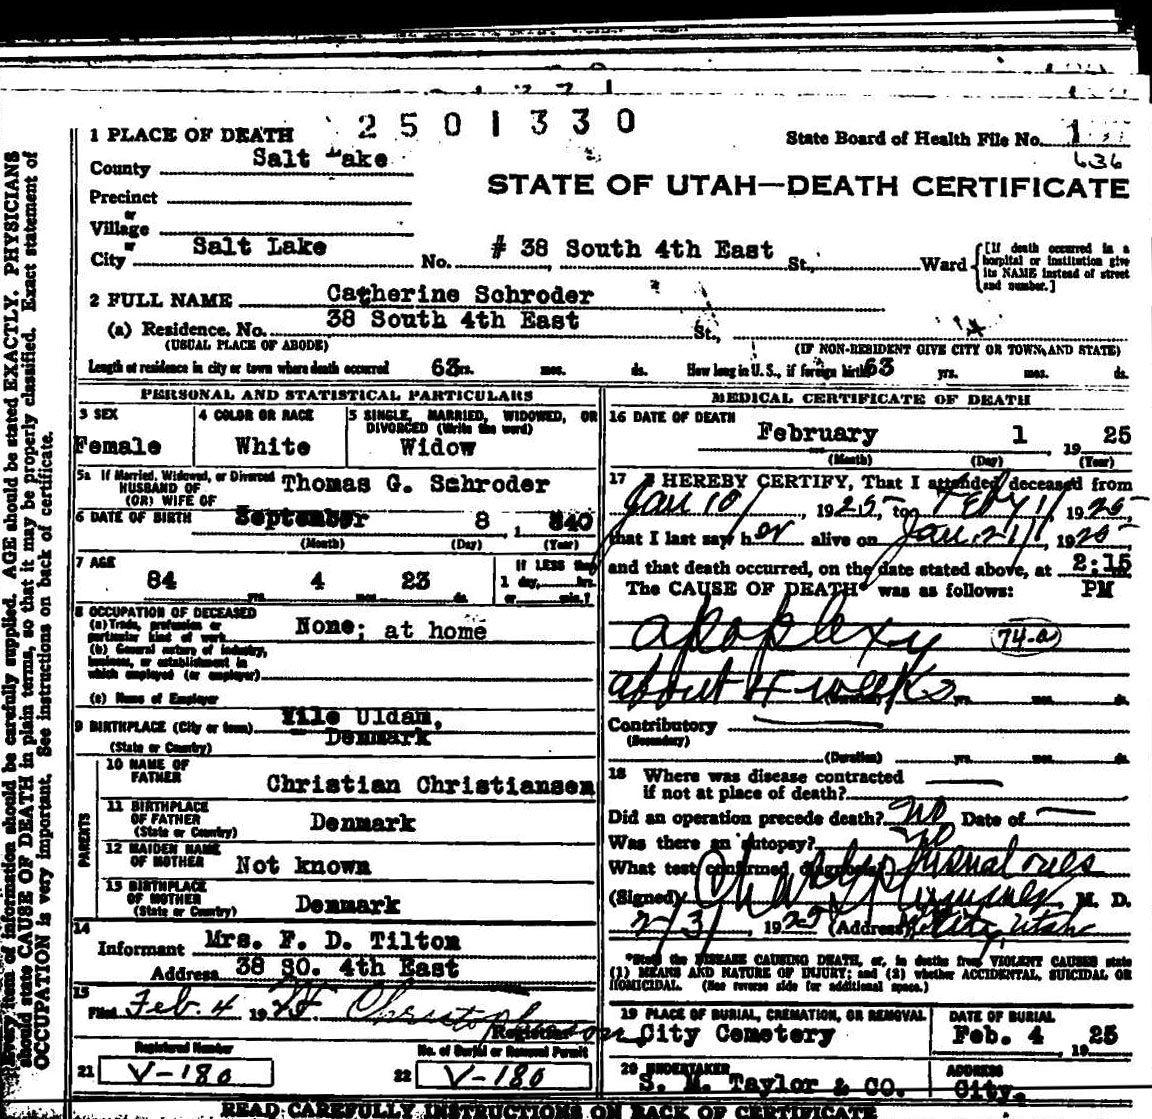 2501330
1 PLACE OF DEATH
State Board of Health File No. 1
636
County Salt Lake
STATE OF UTAH—DEATH CERTIFICATE
Precinct
or
Village
or
City Salt Lake No. # 38 South 4th East St., Ward
[If death occurred in a hospital or institution give its NAME instead of street and number.]
2 FULL NAME Catherine Schroder
(a) Residence. No. 38 South 4th East St.,
(USUAL PLACE OF ABODE) (IF NON-RESIDENT GIVE CITY OR TOWN, AND STATE)
Length of residence in city or town where death occurred 63 yrs. mos. ds. How long in U. S., if foreign birth 63 yrs. mos. ds.
PERSONAL AND STATISTICAL PARTICULARS
3 SEX
Female
4 COLOR OR RACE
White
5 SINGLE, MARRIED, WIDOWED, OR DIVORCED (Write the word)
Widow
5a If Married, Widowed, or Divorced
HUSBAND OF
(OR) WIFE OF Thomas G. Schroder
6 DATE OF BIRTH September 8, 1 840
(Month) (Day) (Year)
7 AGE
84 yrs. 4 mos. 23 ds.
If LESS than
1 day, hrs.
or min.?
8 OCCUPATION OF DECEASED
(a) Trade, profession or
particular kind of work None; at home
(b) General nature of industry,
business, or establishment in
which employed (or employer)
(c) Name of Employer
9 BIRTHPLACE (City or town) Uldam,
(State or Country) Denmark
PARENTS
10 NAME OF
FATHER Christian Christiansen
11 BIRTHPLACE
OF FATHER
(State or Country) Denmark
12 MAIDEN NAME
OF MOTHER Not known
13 BIRTHPLACE
OF MOTHER
(State or Country) Denmark
14
Informant Mrs. F. D. Tilton
Address 38 SO. 4th East
15
Filed Feb. 4 192
Registrar
Registered Number
21 V-180
No. of Burial or Removal Permit
22 V-180
MEDICAL CERTIFICATE OF DEATH
16 DATE OF DEATH
February 1 19 25
(Month) (Day) (Year)
17 I HEREBY CERTIFY, That I attended deceased from
Jan 10, 1925, to Feby 1, 1925,
that I last saw her alive on Jan. 21, 1925
and that death occurred, on the date stated above, at 2:15
The CAUSE OF DEATH* was as follows: PM
apoplexy 74-a
about 4 weeks
(Duration) yrs. mos. ds.
Contributory
(Secondary)
(Duration) yrs. mos. ds.
18 Where was disease contracted
if not at place of death?
Did an operation precede death? No Date of
Was there an autopsy? No
What test confirmed diagnosis
(Signed) M. D.
2/3/ 1925 (Address) City, Utah
*State the DISEASE CAUSING DEATH, or, in deaths from VIOLENT CAUSES state
(1) MEANS AND NATURE OF INJURY; and (2) whether ACCIDENTAL, SUICIDAL OR
HOMICIDAL. (See reverse side for additional space.)
19 PLACE OF BURIAL, CREMATION, OR REMOVAL
City Cemetery
DATE OF BURIAL
Feb. 4 19 25
20 UNDERTAKER
S. M. Taylor & CO.
ADDRESS
City.
READ CAREFULLY INSTRUCTIONS ON BACK OF CERTIFICATE
Every item of information should be carefully supplied. AGE should be stated EXACTLY. PHYSICIANS
should state CAUSE OF DEATH in plain terms, so that it may be properly classified. Exact statement of
OCCUPATION is very important. See instructions on back of certificate.